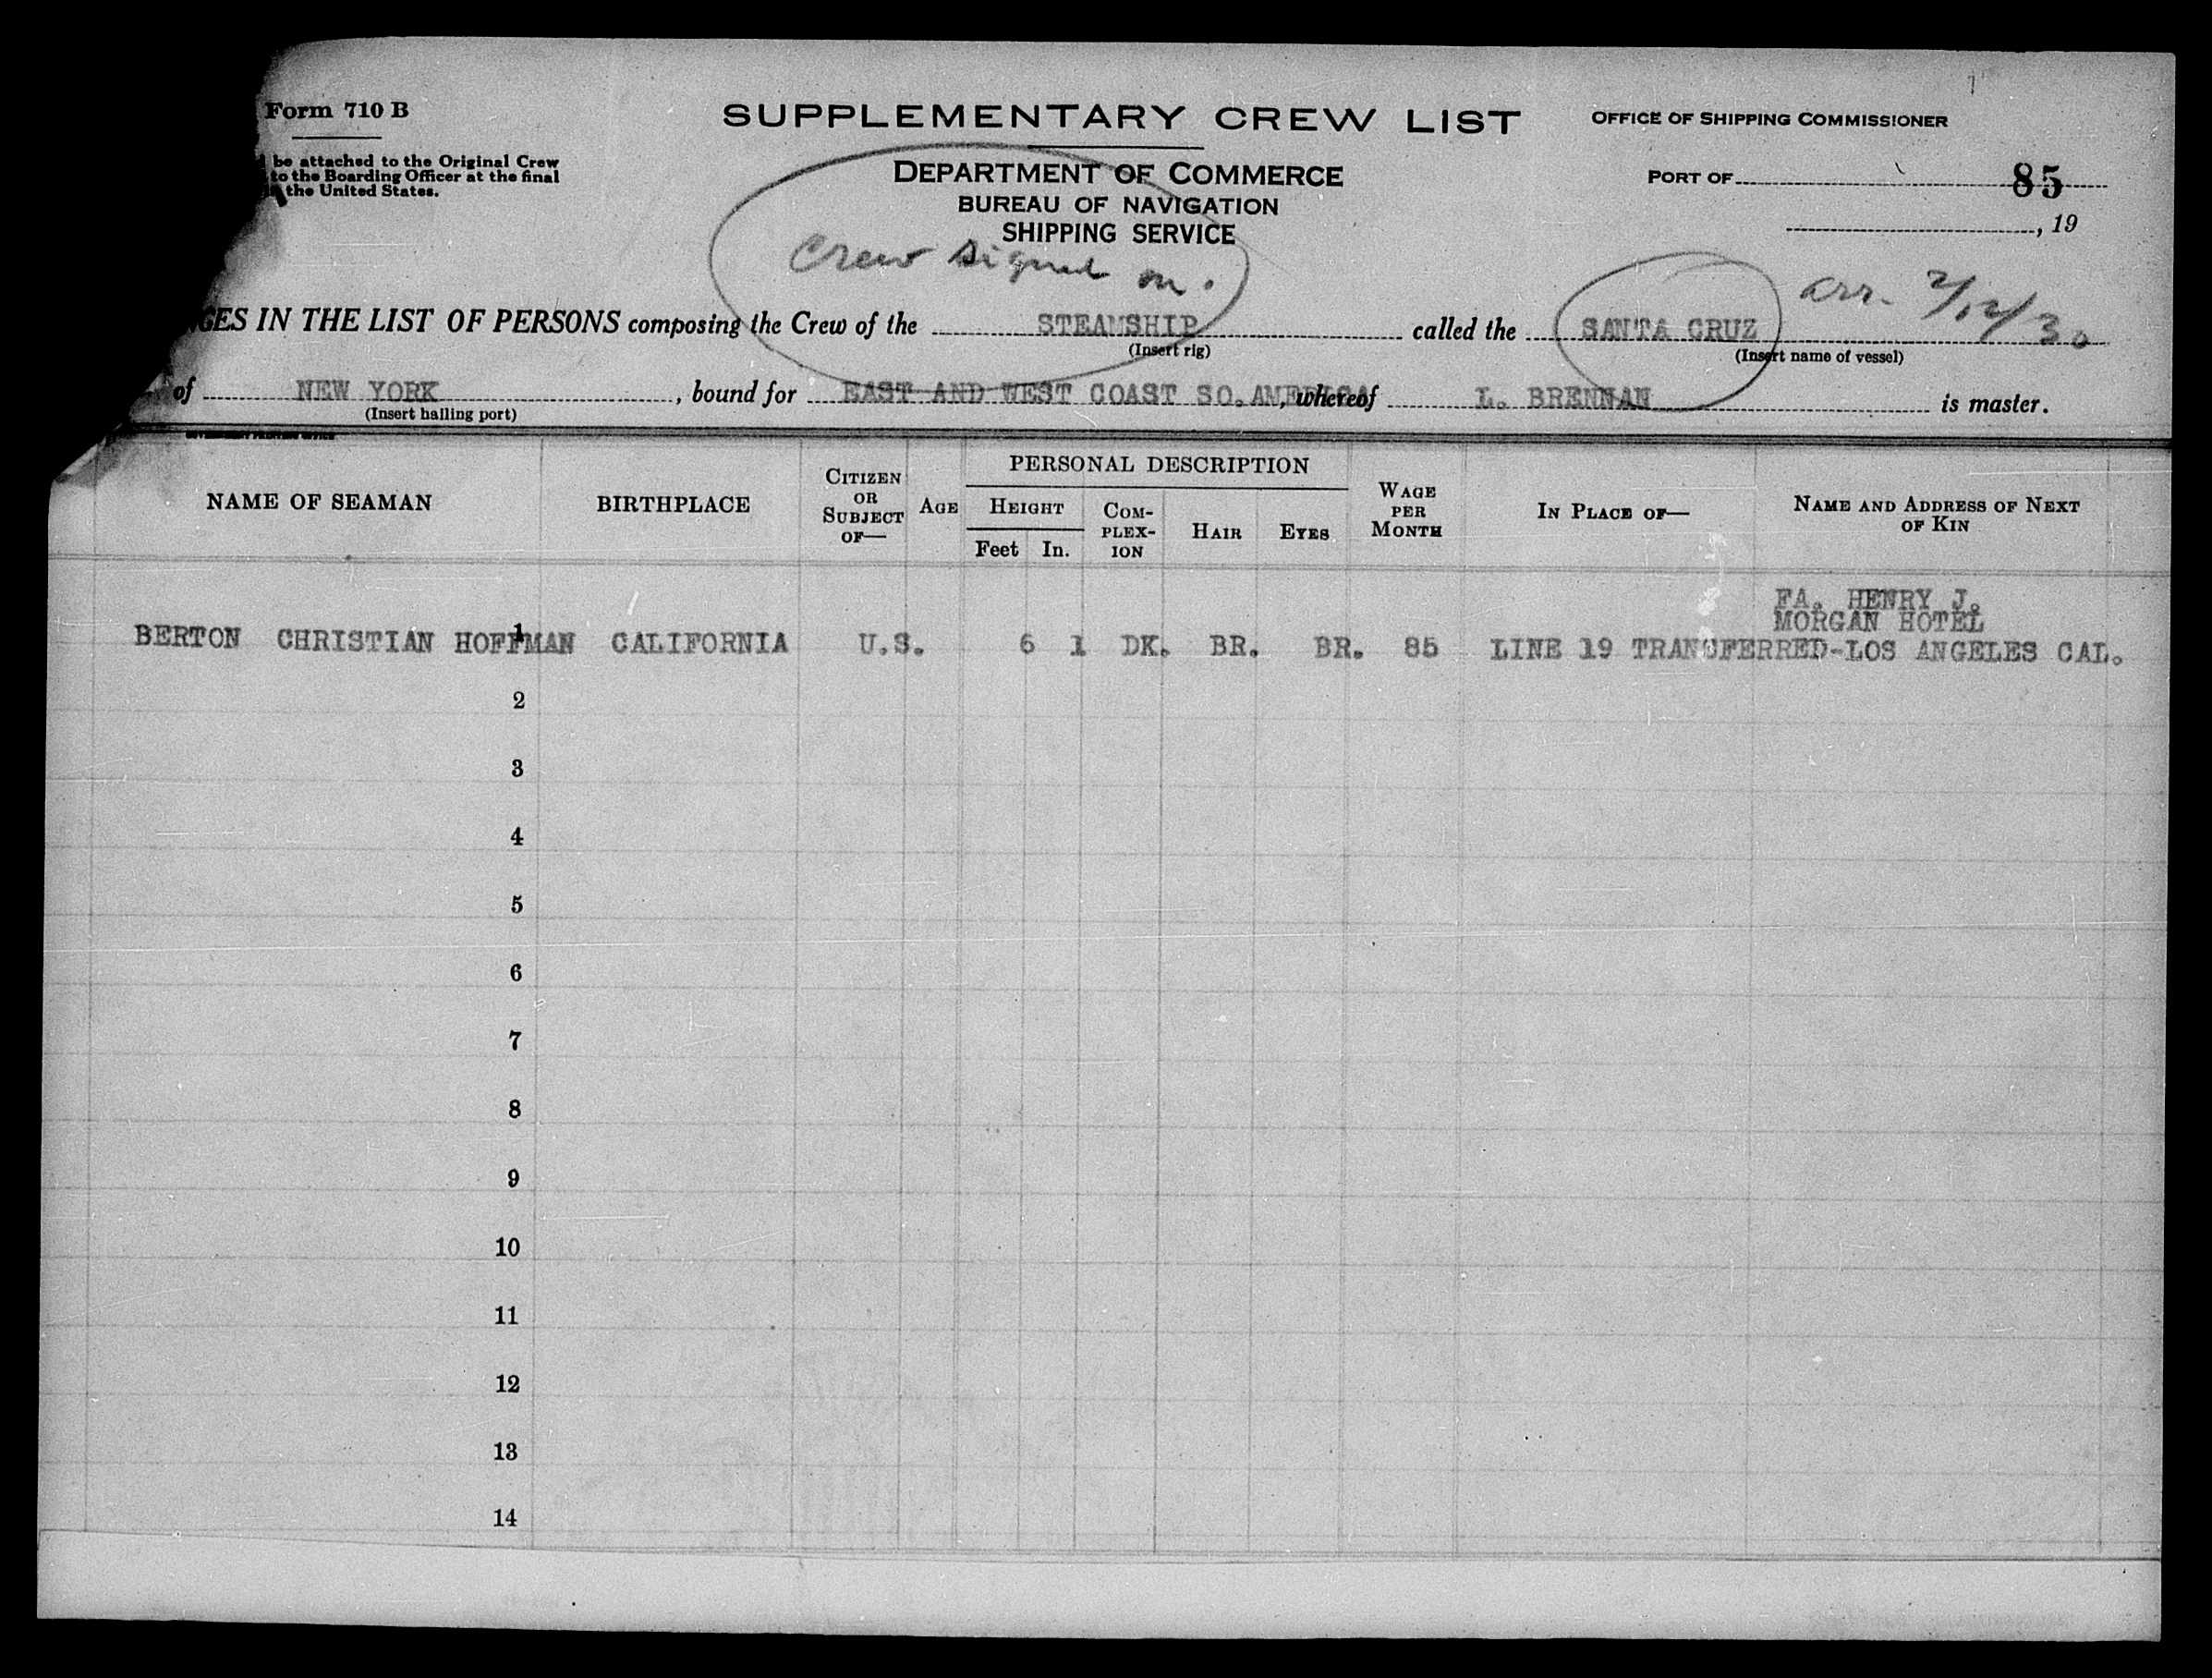 Form 710 B
SUPPLEMENTARY CREW LIST
OFFICE OF SHIPPING COMMISSIONER
be attached to the Original Crew
to the Boarding Officer at the final
the United States.
DEPARTMENT OF COMMERCE
BUREAU OF NAVIGATION
SHIPPING SERVICE
PORT OF 85
, 19
Crew signed on.
arr. 2/12/30
GES IN THE LIST OF PERSONS composing the Crew of the STEAMSHIP called the SANTA CRUZ
(Insert rig) (Insert name of vessel)
of NEW YORK, bound for EAST AND WEST COAST SO. AMERICA, whereof L. BRENNAN is master.
(Insert hailing port)
GOVERNMENT PRINTING OFFICE
NAME OF SEAMAN BIRTHPLACE CITIZEN OR SUBJECT OF— AGE PERSONAL DESCRIPTION HEIGHT Feet In. COMPLEXION HAIR EYES WAGE PER MONTH IN PLACE OF— NAME AND ADDRESS OF NEXT OF KIN
FA. HENRY J.
MORGAN HOTEL
1 BERTON CHRISTIAN HOFFMAN CALIFORNIA U.S. 6 1 DK. BR. BR. 85 LINE 19 TRANSFERRED-LOS ANGELES CAL.
2
3
4
5
6
7
8
9
10
11
12
13
14